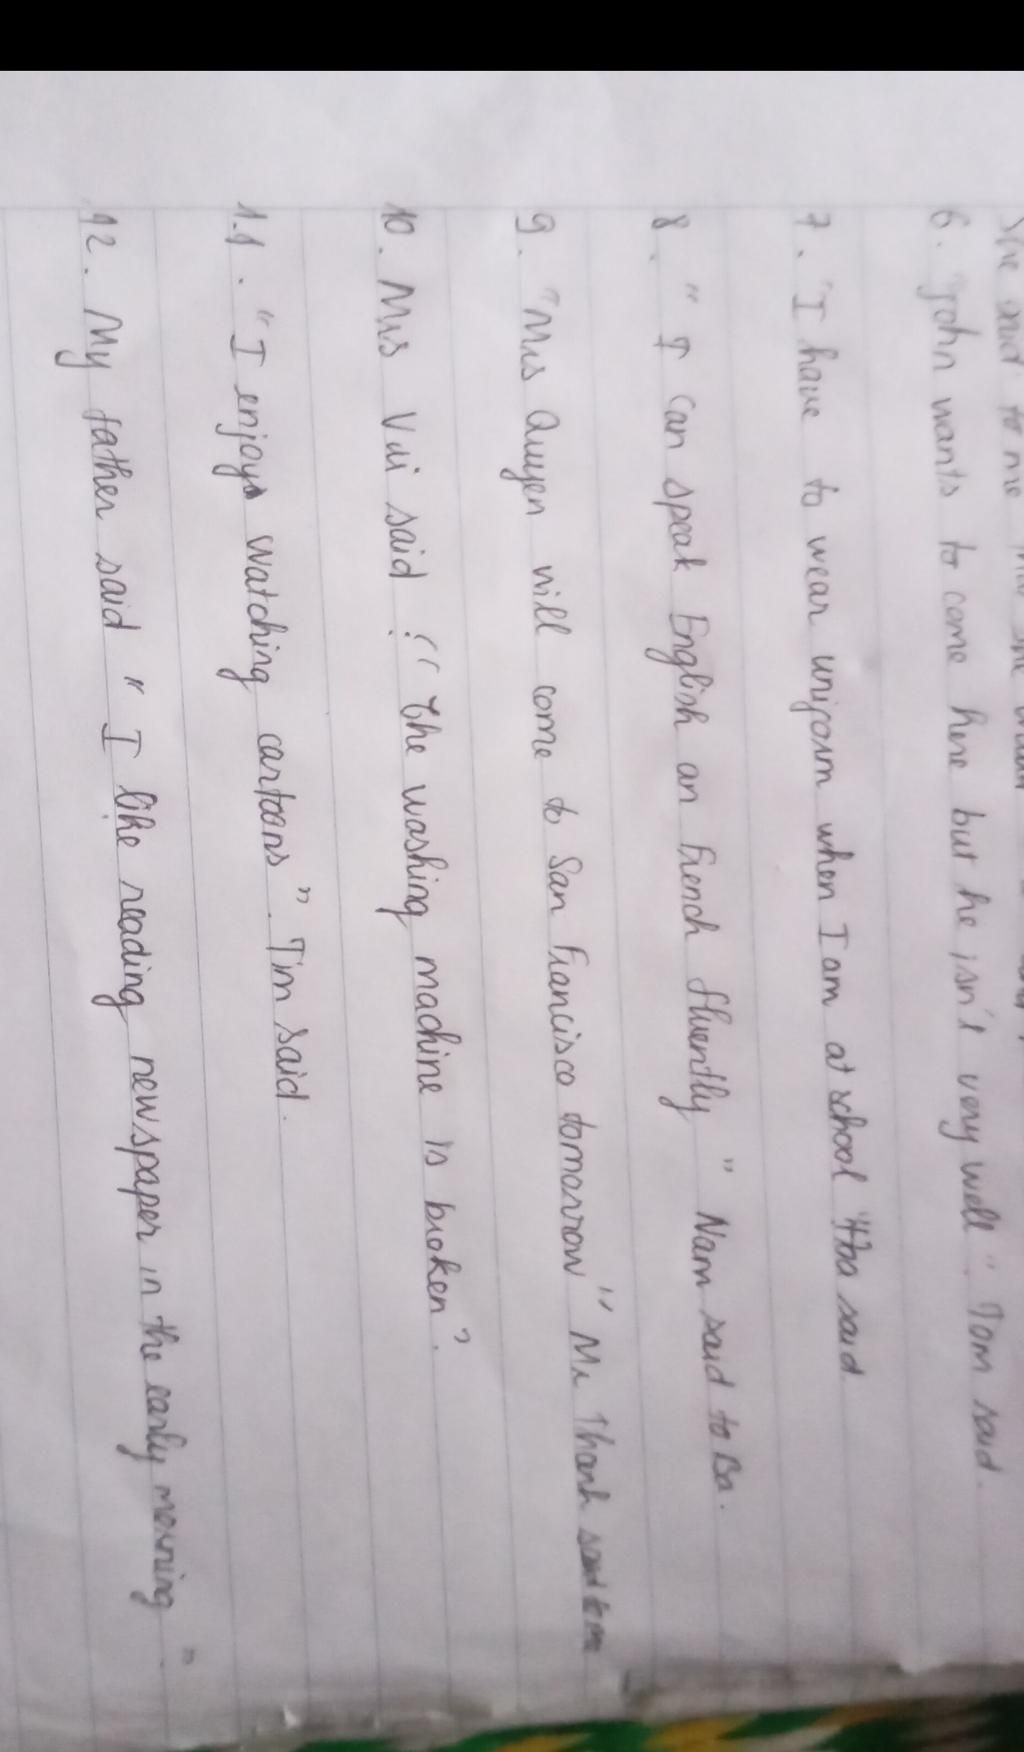 She said to me that she
6. "John wants to come here but he isn't very well". Tom said.
7. "I have to wear uniform when I am at school" Hoa said
8. "I can speak English an French fluently" Nam said to Ba.
9. "Mrs Quyen will come to San Francisco tomorrow" Mr Thanh said to me
10. Mrs Vui said: "The washing machine is broken".
11. "I enjoy watching cartoons". Tim said.
12. My father said "I like reading newspaper in the early morning"